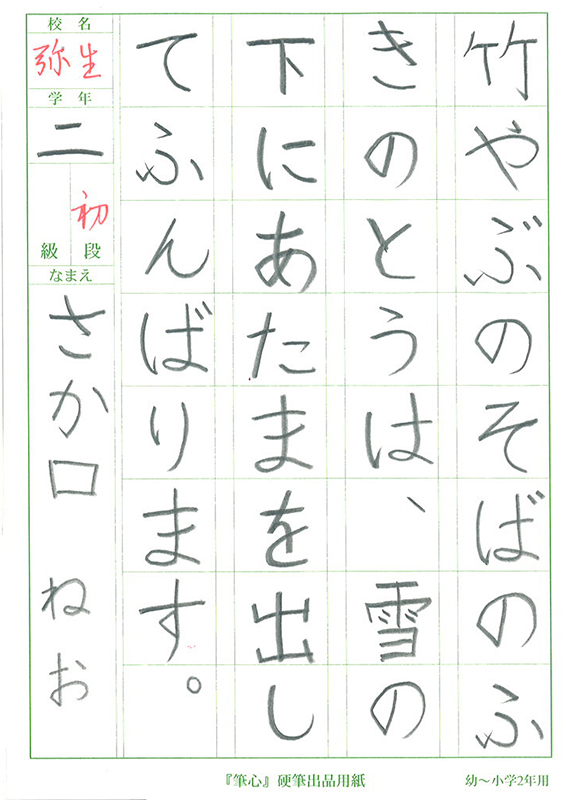 竹やぶのそばのふ
きのとうは、雪の
下にあたまを出し
てふんばります。
校名
弥生
学年
二
初
級 段
なまえ
さか口 ねお
『筆心』硬筆出品用紙
幼～小学2年用